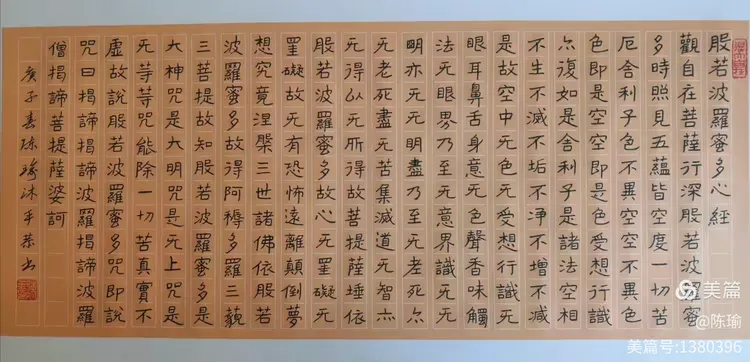 般若波羅蜜多心經
觀自在菩薩行深般若波羅蜜
多時照見五蘊皆空度一切苦
厄舍利子色不異空空不異色
色即是空空即是色受想行識
亦復如是舍利子是諸法空相
不生不滅不垢不淨不增不減
是故空中无色无受想行識无
眼耳鼻舌身意无色聲香味觸
法无眼界乃至无意界識无无
明亦无无明盡乃至无老死亦
无老死盡无苦集滅道无智亦
无得以无所得故菩提薩埵依
般若波羅蜜多故心无罣礙无
罣礙故无有恐怖遠離顛倒夢
想究竟涅槃三世諸佛依般若
波羅蜜多故得阿耨多羅三藐
三菩提故知般若波羅蜜多是
大神咒是大明咒是无上咒是
无等等咒能除一切苦真實不
虛故說般若波羅蜜多咒即說
咒曰揭諦揭諦波羅揭諦波羅
僧揭諦菩提薩婆訶
庚子春陈瑜沐手恭书
美篇
@陈瑜
美篇号:1380396